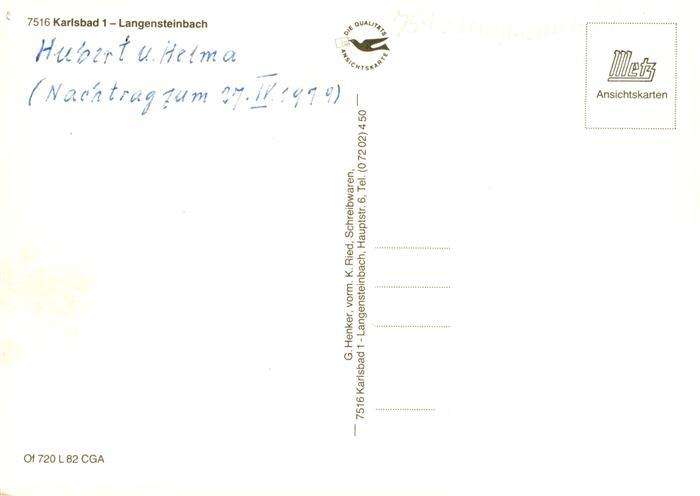 7516 Karlsbad 1 – Langensteinbach
Hubert u. Helma
(Nachtrag zum 27. IV. 1979)
DIE QUALITÄTS
ANSICHTSKARTE
Metz
Ansichtskarten
G. Henker, vorm. K. Ried, Schreibwaren,
7516 Karlsbad 1 - Langensteinbach, Hauptstr. 6, Tel. (0 72 02) 4 50
Of 720 L 82 CGA